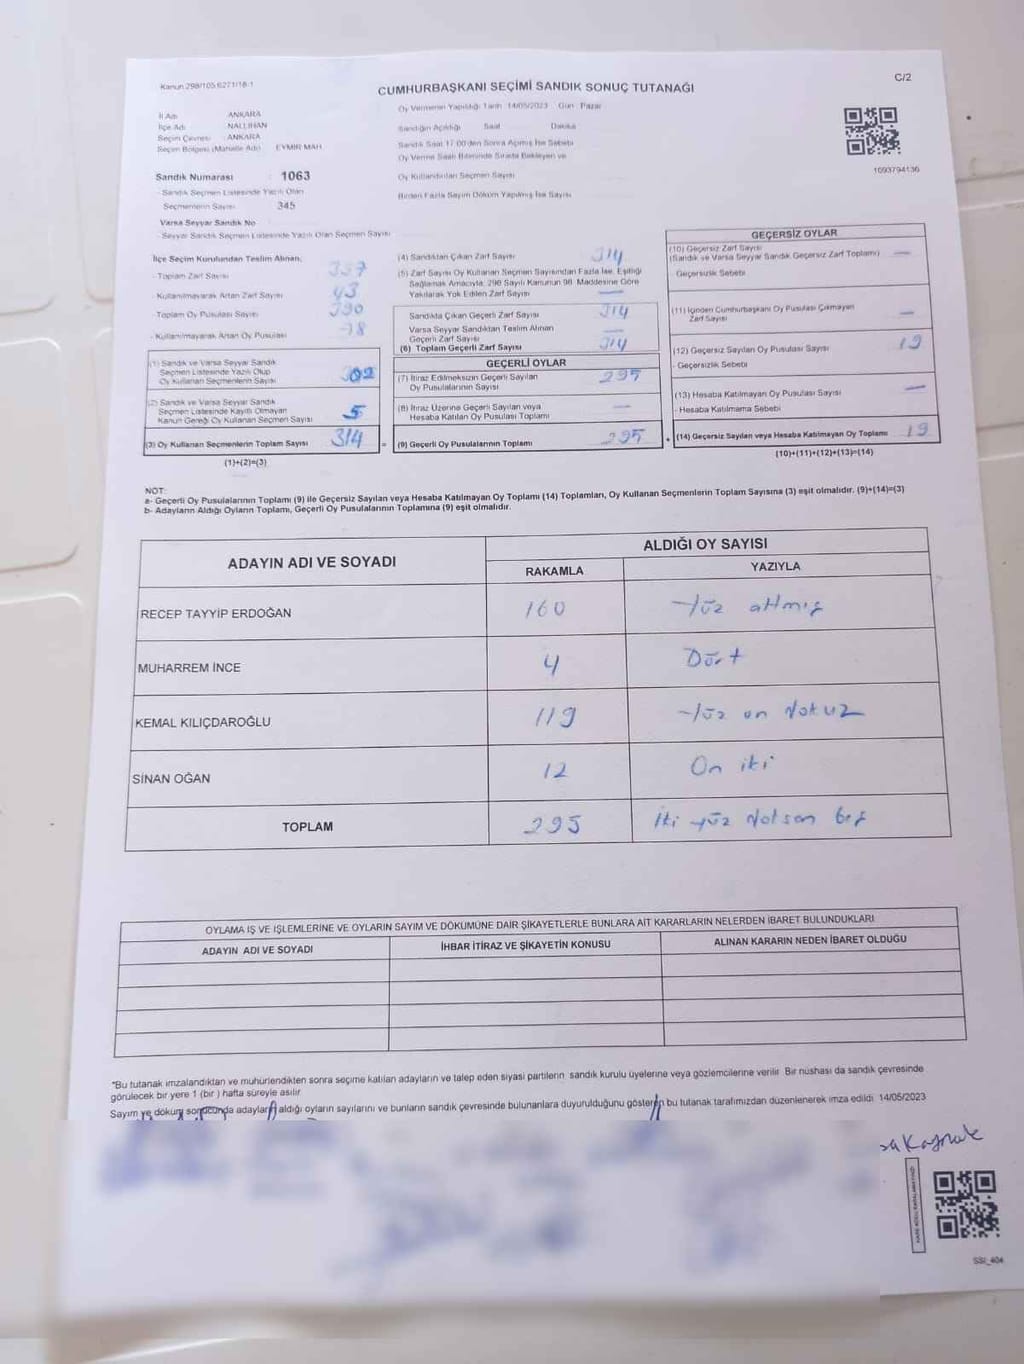 Kanun 298/105 6271/18-1
C/2
CUMHURBAŞKANI SEÇİMİ SANDIK SONUÇ TUTANAĞI
İl Adı ANKARA
İlçe Adı NALLIHAN
Seçim Çevresi ANKARA
Seçim Bölgesi (Mahalle Adı) EYMİR MAH
Oy Vermenin Yapıldığı Tarih 14/05/2023 Gün Pazar
Sandığın Açıldığı Saat Dakika
Sandık Saat 17:00'den Sonra Açılmış İse Sebebi
Oy Verme Saati Bitiminde Sırada Bekleyen ve
Oy Kullandırılan Seçmen Sayısı
Birden Fazla Sayım Döküm Yapılmış İse Sayısı
1093794136
Sandık Numarası : 1063
- Sandık Seçmen Listesinde Yazılı Olan
Seçmenlerin Sayısı 345
Varsa Seyyar Sandık No
- Seyyar Sandık Seçmen Listesinde Yazılı Olan Seçmen Sayısı
İlçe Seçim Kurulundan Teslim Alınan;
- Toplam Zarf Sayısı 357
- Kullanılmayarak Artan Zarf Sayısı 43
- Toplam Oy Pusulası Sayısı 390
- Kullanılmayarak Artan Oy Pusulası 78
(1) Sandık ve Varsa Seyyar Sandık
Seçmen Listesinde Yazılı Olup
Oy Kullanan Seçmenlerin Sayısı 302
(2) Sandık ve Varsa Seyyar Sandık
Seçmen Listesinde Kayıtlı Olmayan
Kanun Gereği Oy Kullanan Seçmen Sayısı 5
(3) Oy Kullanan Seçmenlerin Toplam Sayısı 314
(1)+(2)=(3)
(4) Sandıktan Çıkan Zarf Sayısı 314
(5) Zarf Sayısı Oy Kullanan Seçmen Sayısından Fazla İse, Eşitliği
Sağlamak Amacıyla, 298 Sayılı Kanunun 98. Maddesine Göre
Yakılarak Yok Edilen Zarf Sayısı —
Sandıkta Çıkan Geçerli Zarf Sayısı 314
Varsa Seyyar Sandıktan Teslim Alınan
Geçerli Zarf Sayısı —
(6) Toplam Geçerli Zarf Sayısı 314
GEÇERLİ OYLAR
(7) İtiraz Edilmeksizin Geçerli Sayılan
Oy Pusulalarının Sayısı 295
(8) İtiraz Üzerine Geçerli Sayılan veya
Hesaba Katılan Oy Pusulası Toplamı —
= (9) Geçerli Oy Pusulalarının Toplamı 295
GEÇERSİZ OYLAR
(10) Geçersiz Zarf Sayısı
(Sandık ve Varsa Seyyar Sandık Geçersiz Zarf Toplamı) —
- Geçersizlik Sebebi
(11) İçinden Cumhurbaşkanı Oy Pusulası Çıkmayan
Zarf Sayısı —
(12) Geçersiz Sayılan Oy Pusulası Sayısı 19
- Geçersizlik Sebebi
(13) Hesaba Katılmayan Oy Pusulası Sayısı —
- Hesaba Katılmama Sebebi
+ (14) Geçersiz Sayılan veya Hesaba Katılmayan Oy Toplamı 19
(10)+(11)+(12)+(13)=(14)
NOT:
a- Geçerli Oy Pusulalarının Toplamı (9) ile Geçersiz Sayılan veya Hesaba Katılmayan Oy Toplamı (14) Toplamları, Oy Kullanan Seçmenlerin Toplam Sayısına (3) eşit olmalıdır. (9)+(14)=(3)
b- Adayların Aldığı Oyların Toplamı, Geçerli Oy Pusulalarının Toplamına (9) eşit olmalıdır.
ADAYIN ADI VE SOYADI
ALDIĞI OY SAYISI
RAKAMLA YAZIYLA
RECEP TAYYİP ERDOĞAN 160 Yüz altmış
MUHARREM İNCE 4 Dört
KEMAL KILIÇDAROĞLU 119 Yüz on dokuz
SİNAN OĞAN 12 On iki
TOPLAM 295 iki yüz doksan beş
OYLAMA İŞ VE İŞLEMLERİNE VE OYLARIN SAYIM VE DÖKÜMÜNE DAİR ŞİKAYETLERLE BUNLARA AİT KARARLARIN NELERDEN İBARET BULUNDUKLARI
ADAYIN ADI VE SOYADI İHBAR İTİRAZ VE ŞİKAYETİN KONUSU ALINAN KARARIN NEDEN İBARET OLDUĞU
*Bu tutanak imzalandıktan ve mühürlendikten sonra seçime katılan adayların ve talep eden siyasi partilerin sandık kurulu üyelerine veya gözlemcilerine verilir. Bir nüshası da sandık çevresinde
görülecek bir yere 1 (bir) hafta süreyle asılır
Sayım ve döküm sonucunda adayların aldığı oyların sayılarını ve bunların sandık çevresinde bulunanlara duyurulduğunu gösteren bu tutanak tarafımızdan düzenlenerek imza edildi. 14/05/2023
SSI_404